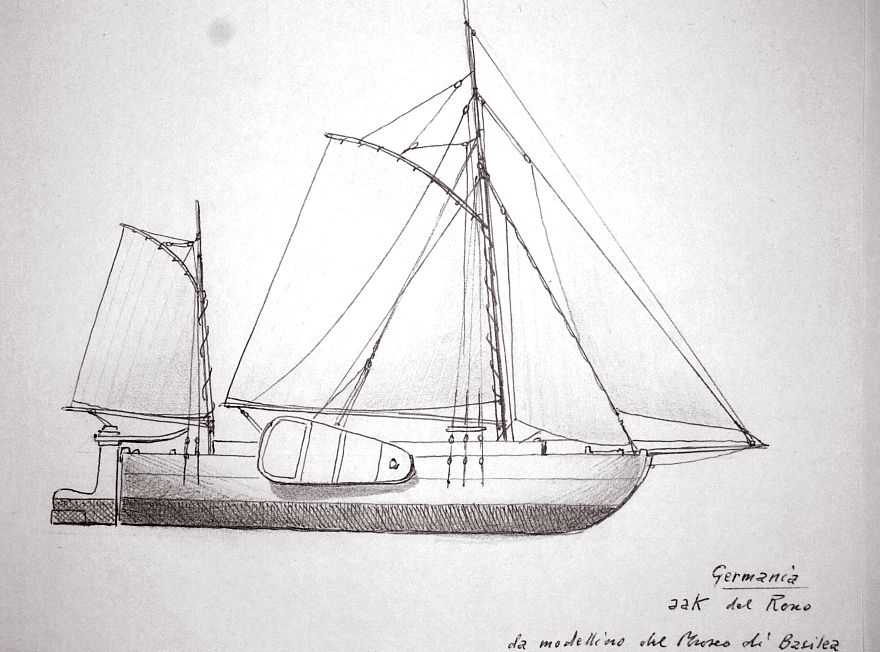 Germania
aak del Reno
da modellino del Museo di Basilea